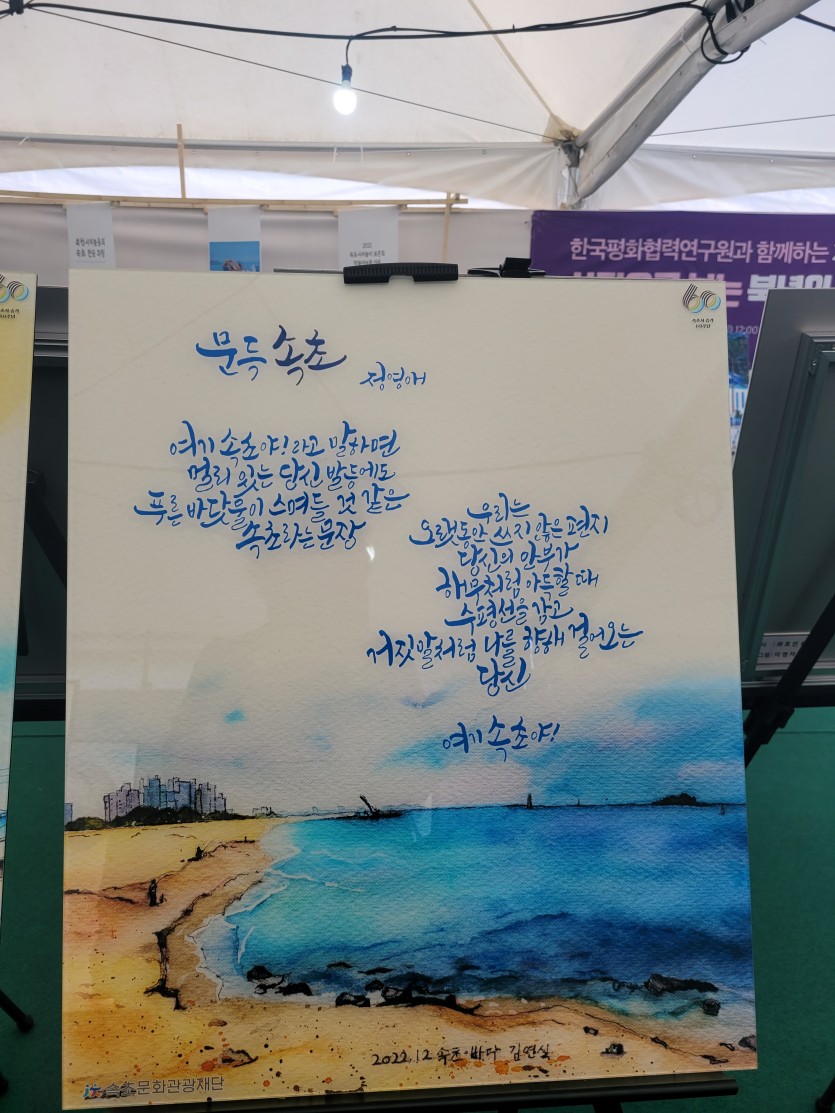 한국평화협력연구원과 함께하는
문득 속초
정영애
여기 속초야! 라고 말하면
멀리 있는 당신 발등에도
푸른 바닷물이 스며들 것 같은
속초라는 문장
우리는
오랫동안 쓰지 않은 편지
당신의 안부가
해무처럼 아득할 때
수평선을 감고
거짓말처럼 나를 향해 걸어오는
당신
여기 속초야!
2022.12 속초·바다 김연식
속초문화관광재단
60